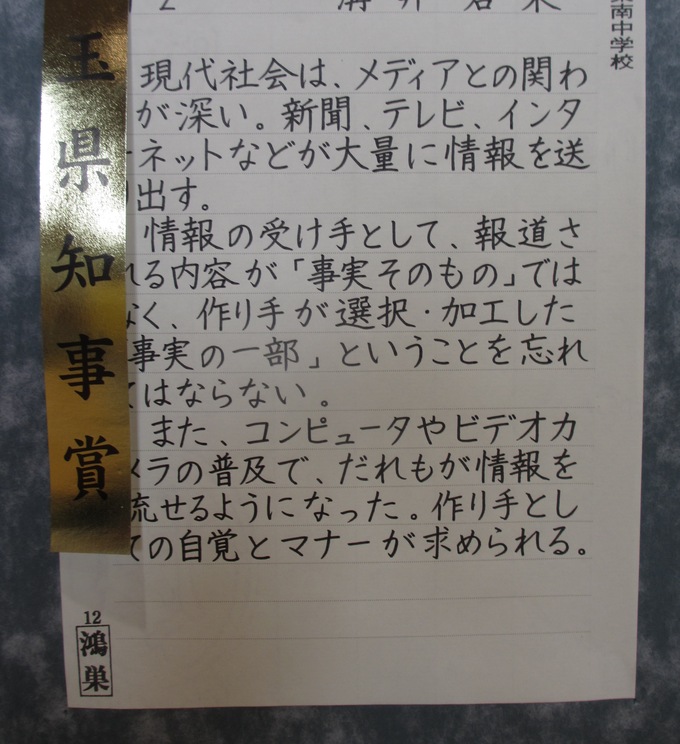 2
南中学校
玉県知事賞
現代社会は、メディアとの関わ
が深い。新聞、テレビ、インタ
ーネットなどが大量に情報を送
り出す。
情報の受け手として、報道さ
れる内容が「事実そのもの」では
なく、作り手が選択・加工した
事実の一部」ということを忘れ
てはならない。
また、コンピュータやビデオカ
メラの普及で、だれもが情報を
流せるようになった。作り手とし
ての自覚とマナーが求められる。
12
鴻巣